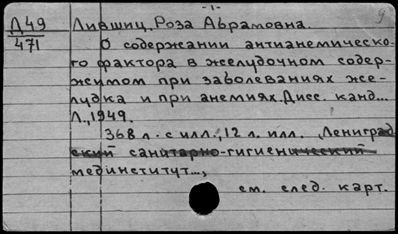 -1-
Д49 Лившиц, Роза Абрамовна.
471
О содержании антианемическо-
го фактора в желудочном содер-
жимом при заболеваниях же-
лудка и при анемиях. Дисс. канд...
Л., 1949.
368 л. с илл., 12 л. илл. Ленинград
ский санитарно-гигиенический
мединститут...,
см. след. карт.